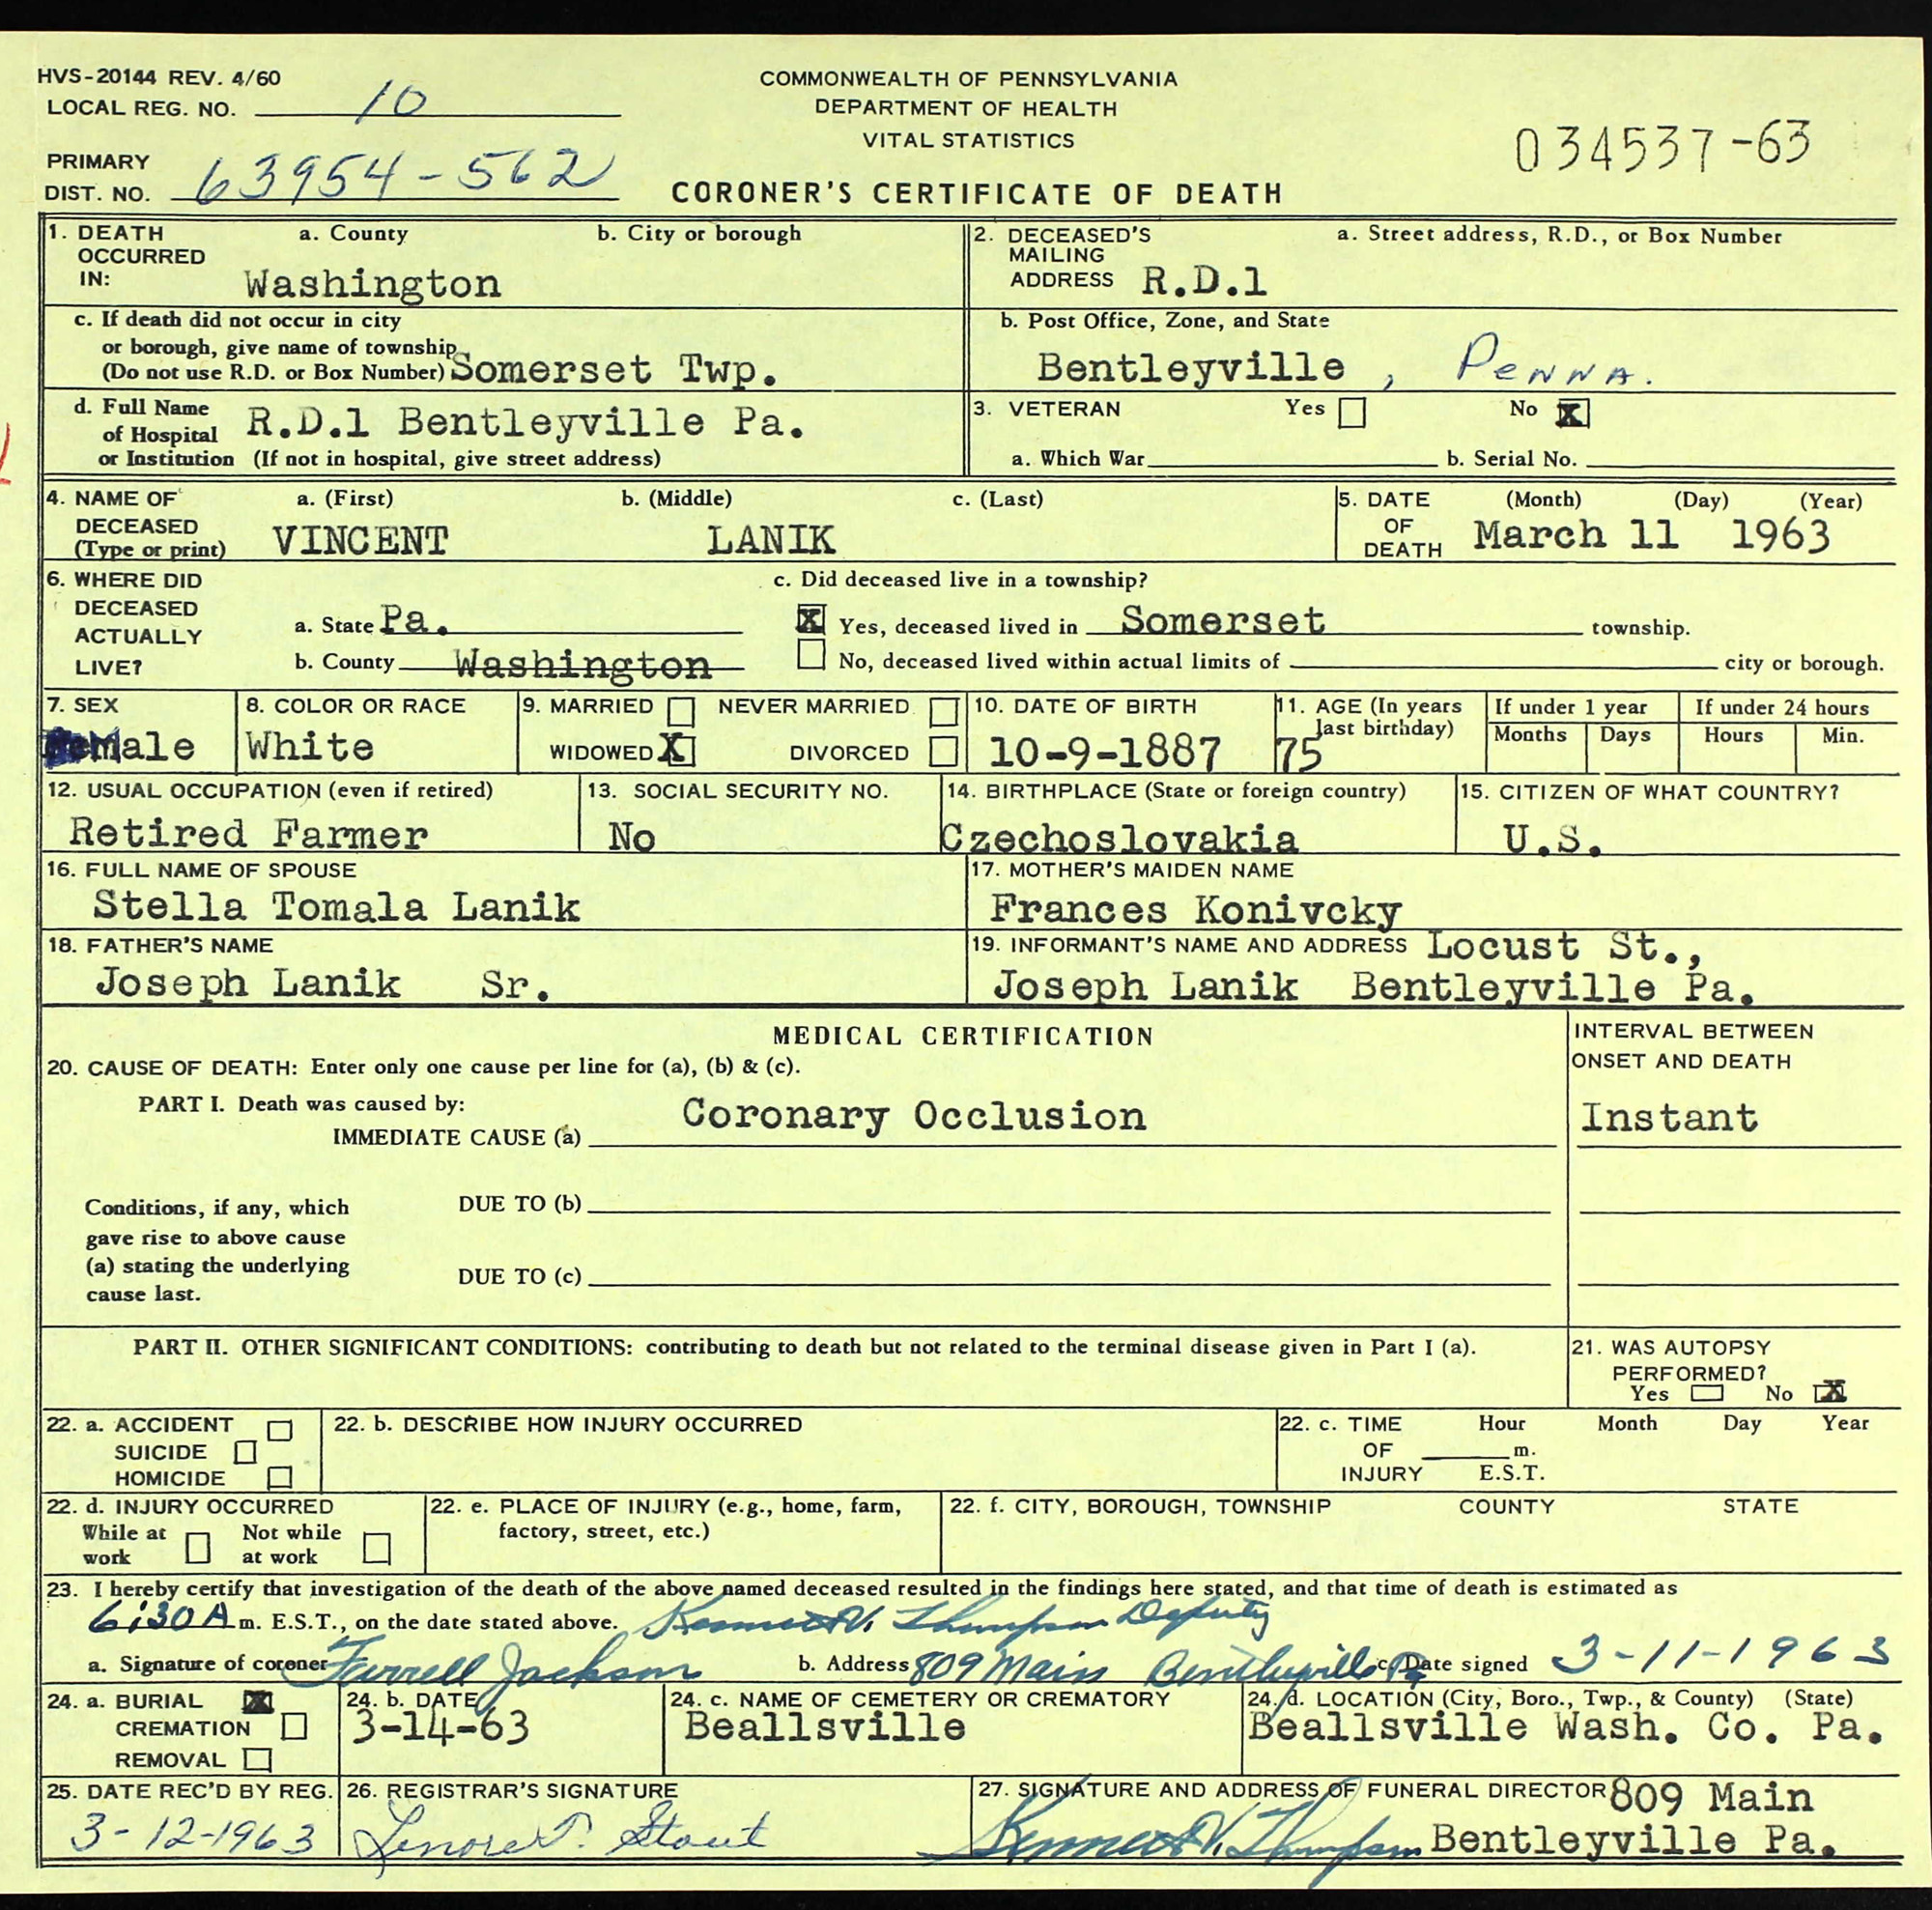 HVS-20144 REV. 4/60
LOCAL REG. NO. 10
COMMONWEALTH OF PENNSYLVANIA
DEPARTMENT OF HEALTH
VITAL STATISTICS
034537-63
PRIMARY
DIST. NO. 63954-562
CORONER'S CERTIFICATE OF DEATH
1. DEATH OCCURRED IN: a. County b. City or borough
Washington
2. DECEASED'S MAILING ADDRESS a. Street address, R.D., or Box Number
R.D.1
c. If death did not occur in city
or borough, give name of township
(Do not use R.D. or Box Number) Somerset Twp.
b. Post Office, Zone, and State
Bentleyville , Penna.
d. Full Name
of Hospital R.D.1 Bentleyville Pa.
or Institution (If not in hospital, give street address)
3. VETERAN Yes No X
a. Which War b. Serial No.
4. NAME OF DECEASED (Type or print) a. (First) b. (Middle) c. (Last)
VINCENT LANIK
5. DATE OF DEATH (Month) (Day) (Year)
March 11 1963
6. WHERE DID DECEASED ACTUALLY LIVE?
a. State Pa.
b. County Washington
c. Did deceased live in a township?
X Yes, deceased lived in Somerset township.
No, deceased lived within actual limits of city or borough.
7. SEX
male
8. COLOR OR RACE
White
9. MARRIED NEVER MARRIED
WIDOWED X DIVORCED
10. DATE OF BIRTH
10-9-1887
11. AGE (In years last birthday)
75
If under 1 year
Months Days
If under 24 hours
Hours Min.
12. USUAL OCCUPATION (even if retired)
Retired Farmer
13. SOCIAL SECURITY NO.
No
14. BIRTHPLACE (State or foreign country)
Czechoslovakia
15. CITIZEN OF WHAT COUNTRY?
U.S.
16. FULL NAME OF SPOUSE
Stella Tomala Lanik
17. MOTHER'S MAIDEN NAME
Frances Konivcky
18. FATHER'S NAME
Joseph Lanik Sr.
19. INFORMANT'S NAME AND ADDRESS Locust St.,
Joseph Lanik Bentleyville Pa.
MEDICAL CERTIFICATION
INTERVAL BETWEEN
ONSET AND DEATH
20. CAUSE OF DEATH: Enter only one cause per line for (a), (b) & (c).
PART I. Death was caused by:
IMMEDIATE CAUSE (a) Coronary Occlusion
Instant
Conditions, if any, which
gave rise to above cause
(a) stating the underlying
cause last.
DUE TO (b)
DUE TO (c)
PART II. OTHER SIGNIFICANT CONDITIONS: contributing to death but not related to the terminal disease given in Part I (a).
21. WAS AUTOPSY
PERFORMED?
Yes No X
22. a. ACCIDENT
SUICIDE
HOMICIDE
22. b. DESCRIBE HOW INJURY OCCURRED
22. c. TIME OF INJURY Hour Month Day Year
m.
E.S.T.
22. d. INJURY OCCURRED
While at work Not while at work
22. e. PLACE OF INJURY (e.g., home, farm,
factory, street, etc.)
22. f. CITY, BOROUGH, TOWNSHIP COUNTY STATE
23. I hereby certify that investigation of the death of the above named deceased resulted in the findings here stated, and that time of death is estimated as
6:30 A m. E.S.T., on the date stated above. Kenneth V. Thompson Deputy
a. Signature of coroner Farrell Jackson b. Address 809 Main Bentleyville Pa c. Date signed 3-11-1963
24. a. BURIAL X
CREMATION
REMOVAL
24. b. DATE
3-14-63
24. c. NAME OF CEMETERY OR CREMATORY
Beallsville
24. d. LOCATION (City, Boro., Twp., & County) (State)
Beallsville Wash. Co. Pa.
25. DATE REC'D BY REG.
3-12-1963
26. REGISTRAR'S SIGNATURE
Lenore P. Stout
27. SIGNATURE AND ADDRESS OF FUNERAL DIRECTOR 809 Main
Kenneth V. Thompson Bentleyville Pa.